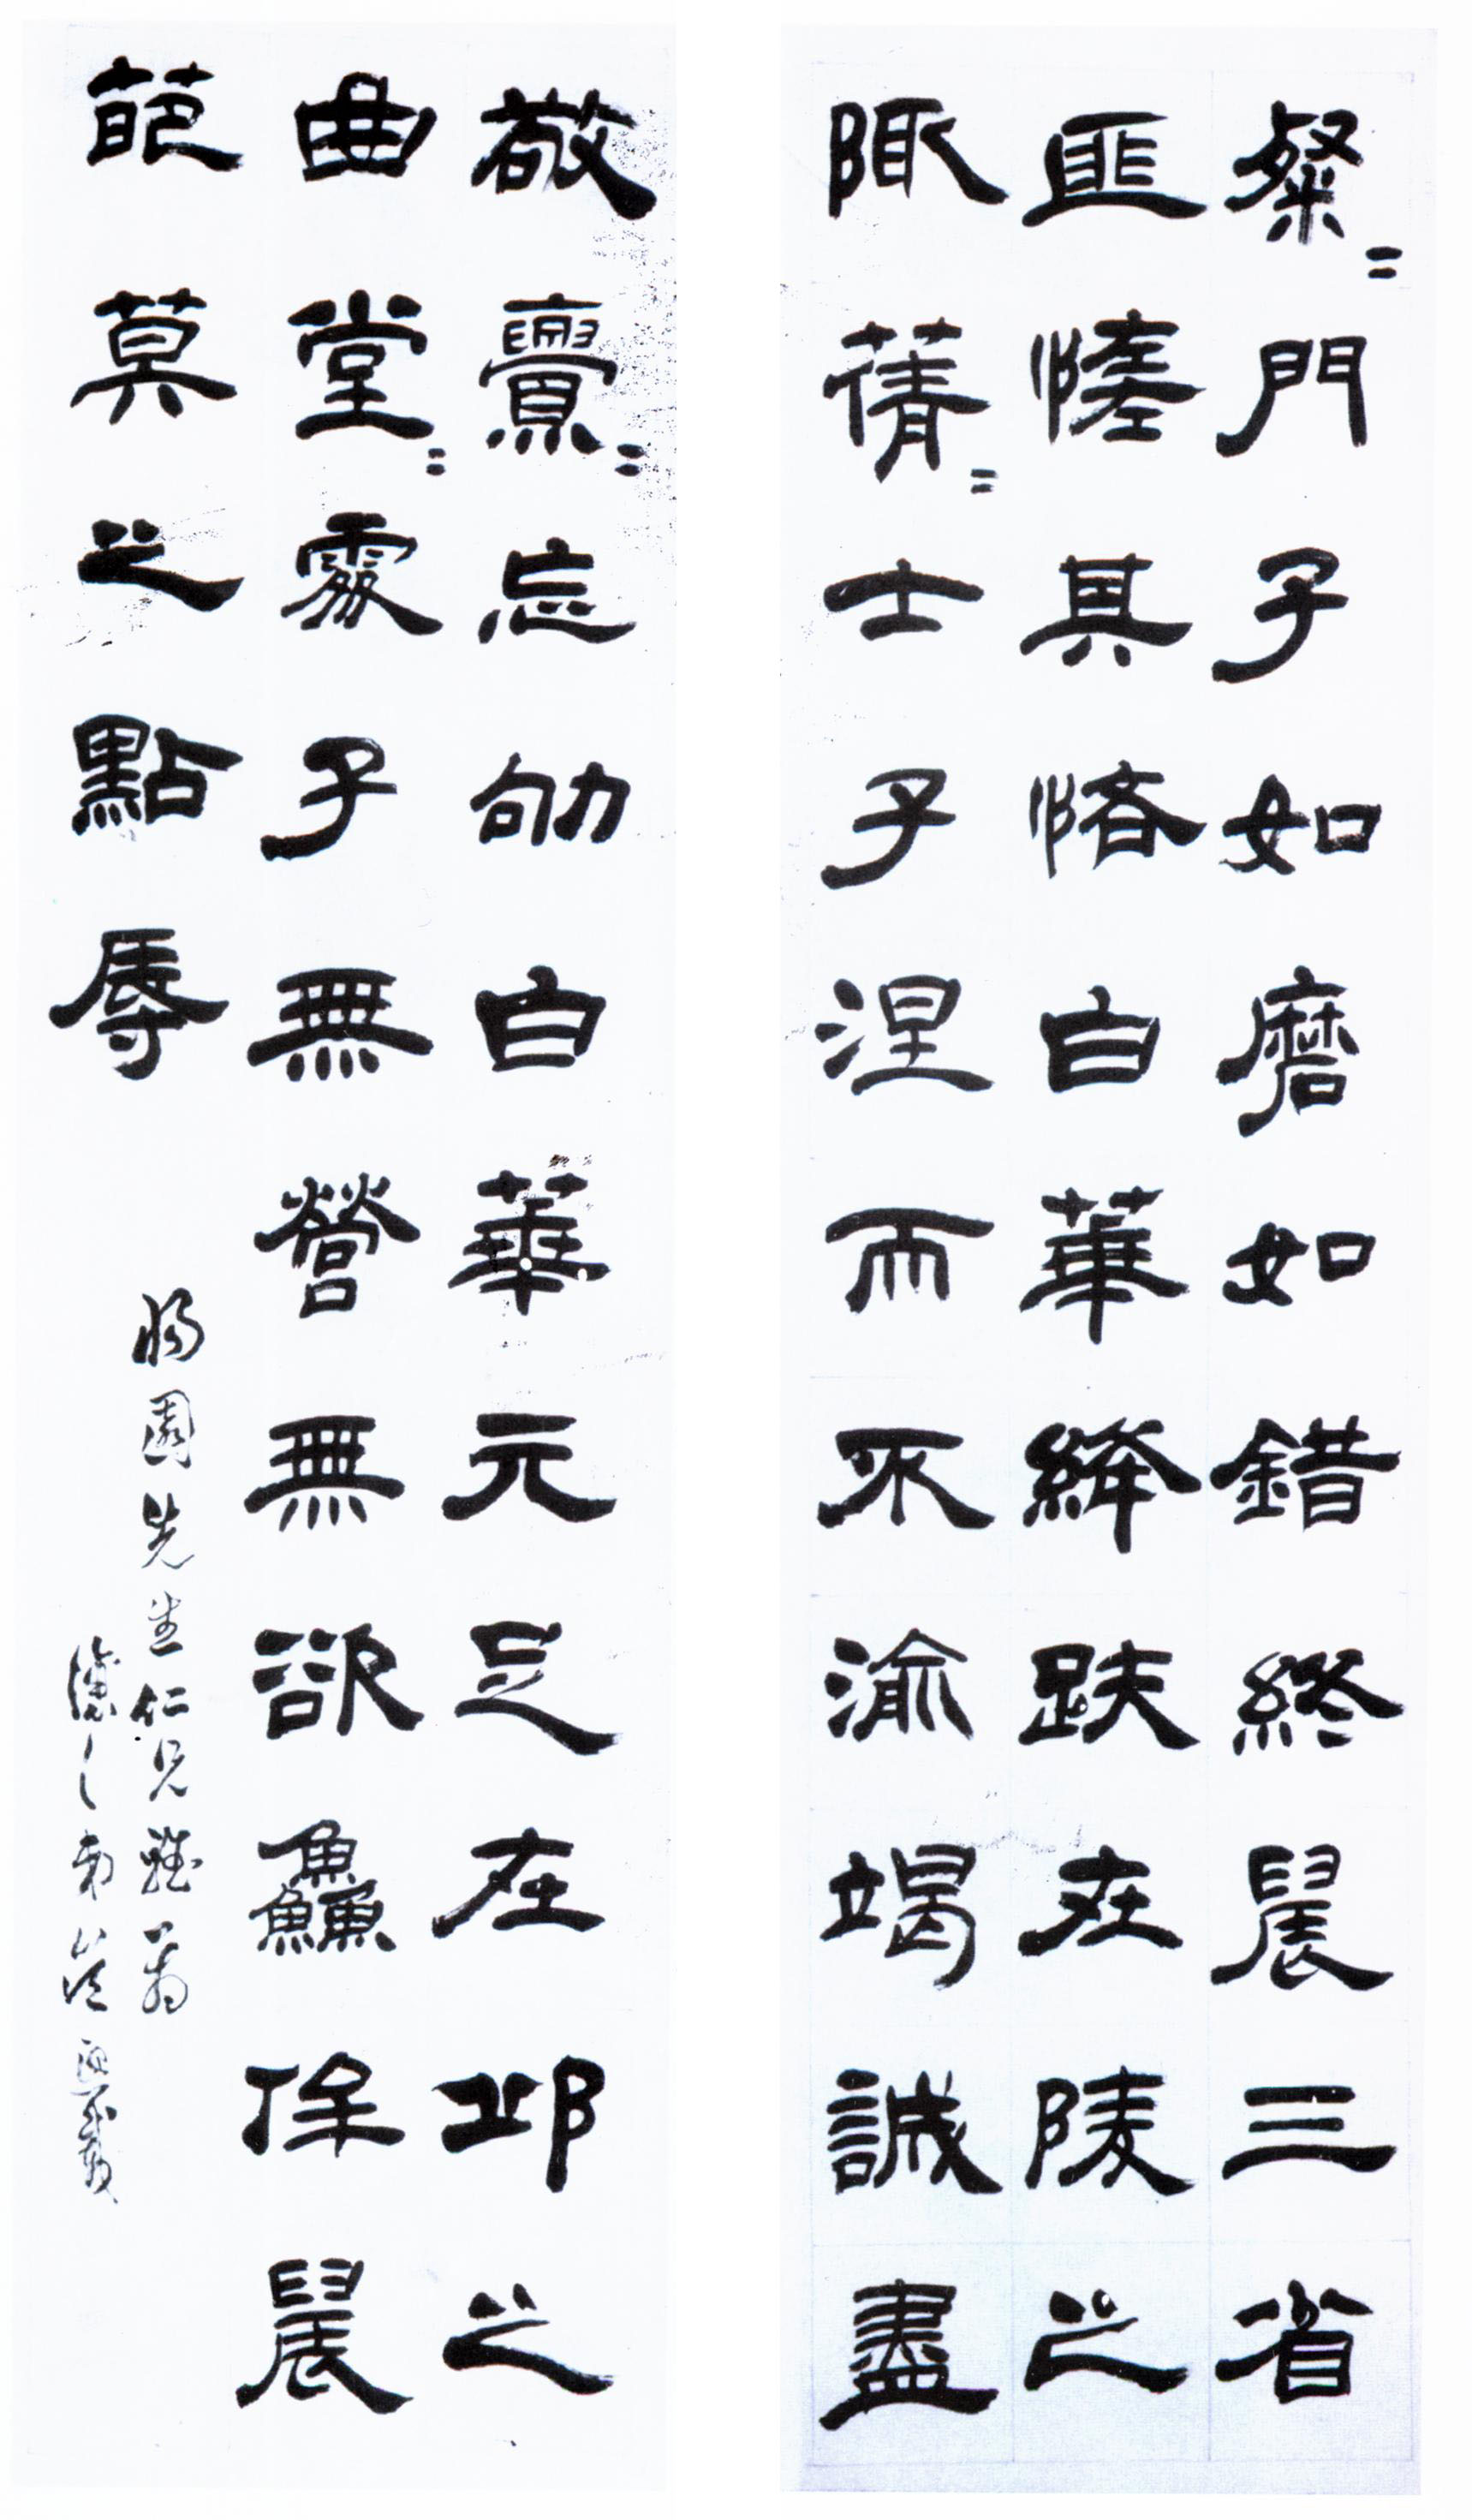 粲〻門子如磨如錯終晨三省
匪憜其恪白華絳趺在陵之
陬蒨〻士子涅而不渝竭誠盡
敬亹〻忘劬白華元足在邱之
曲堂〻處子無營無欲鱻侔晨
葩莫之點辱
園先生仁兄雅
弟